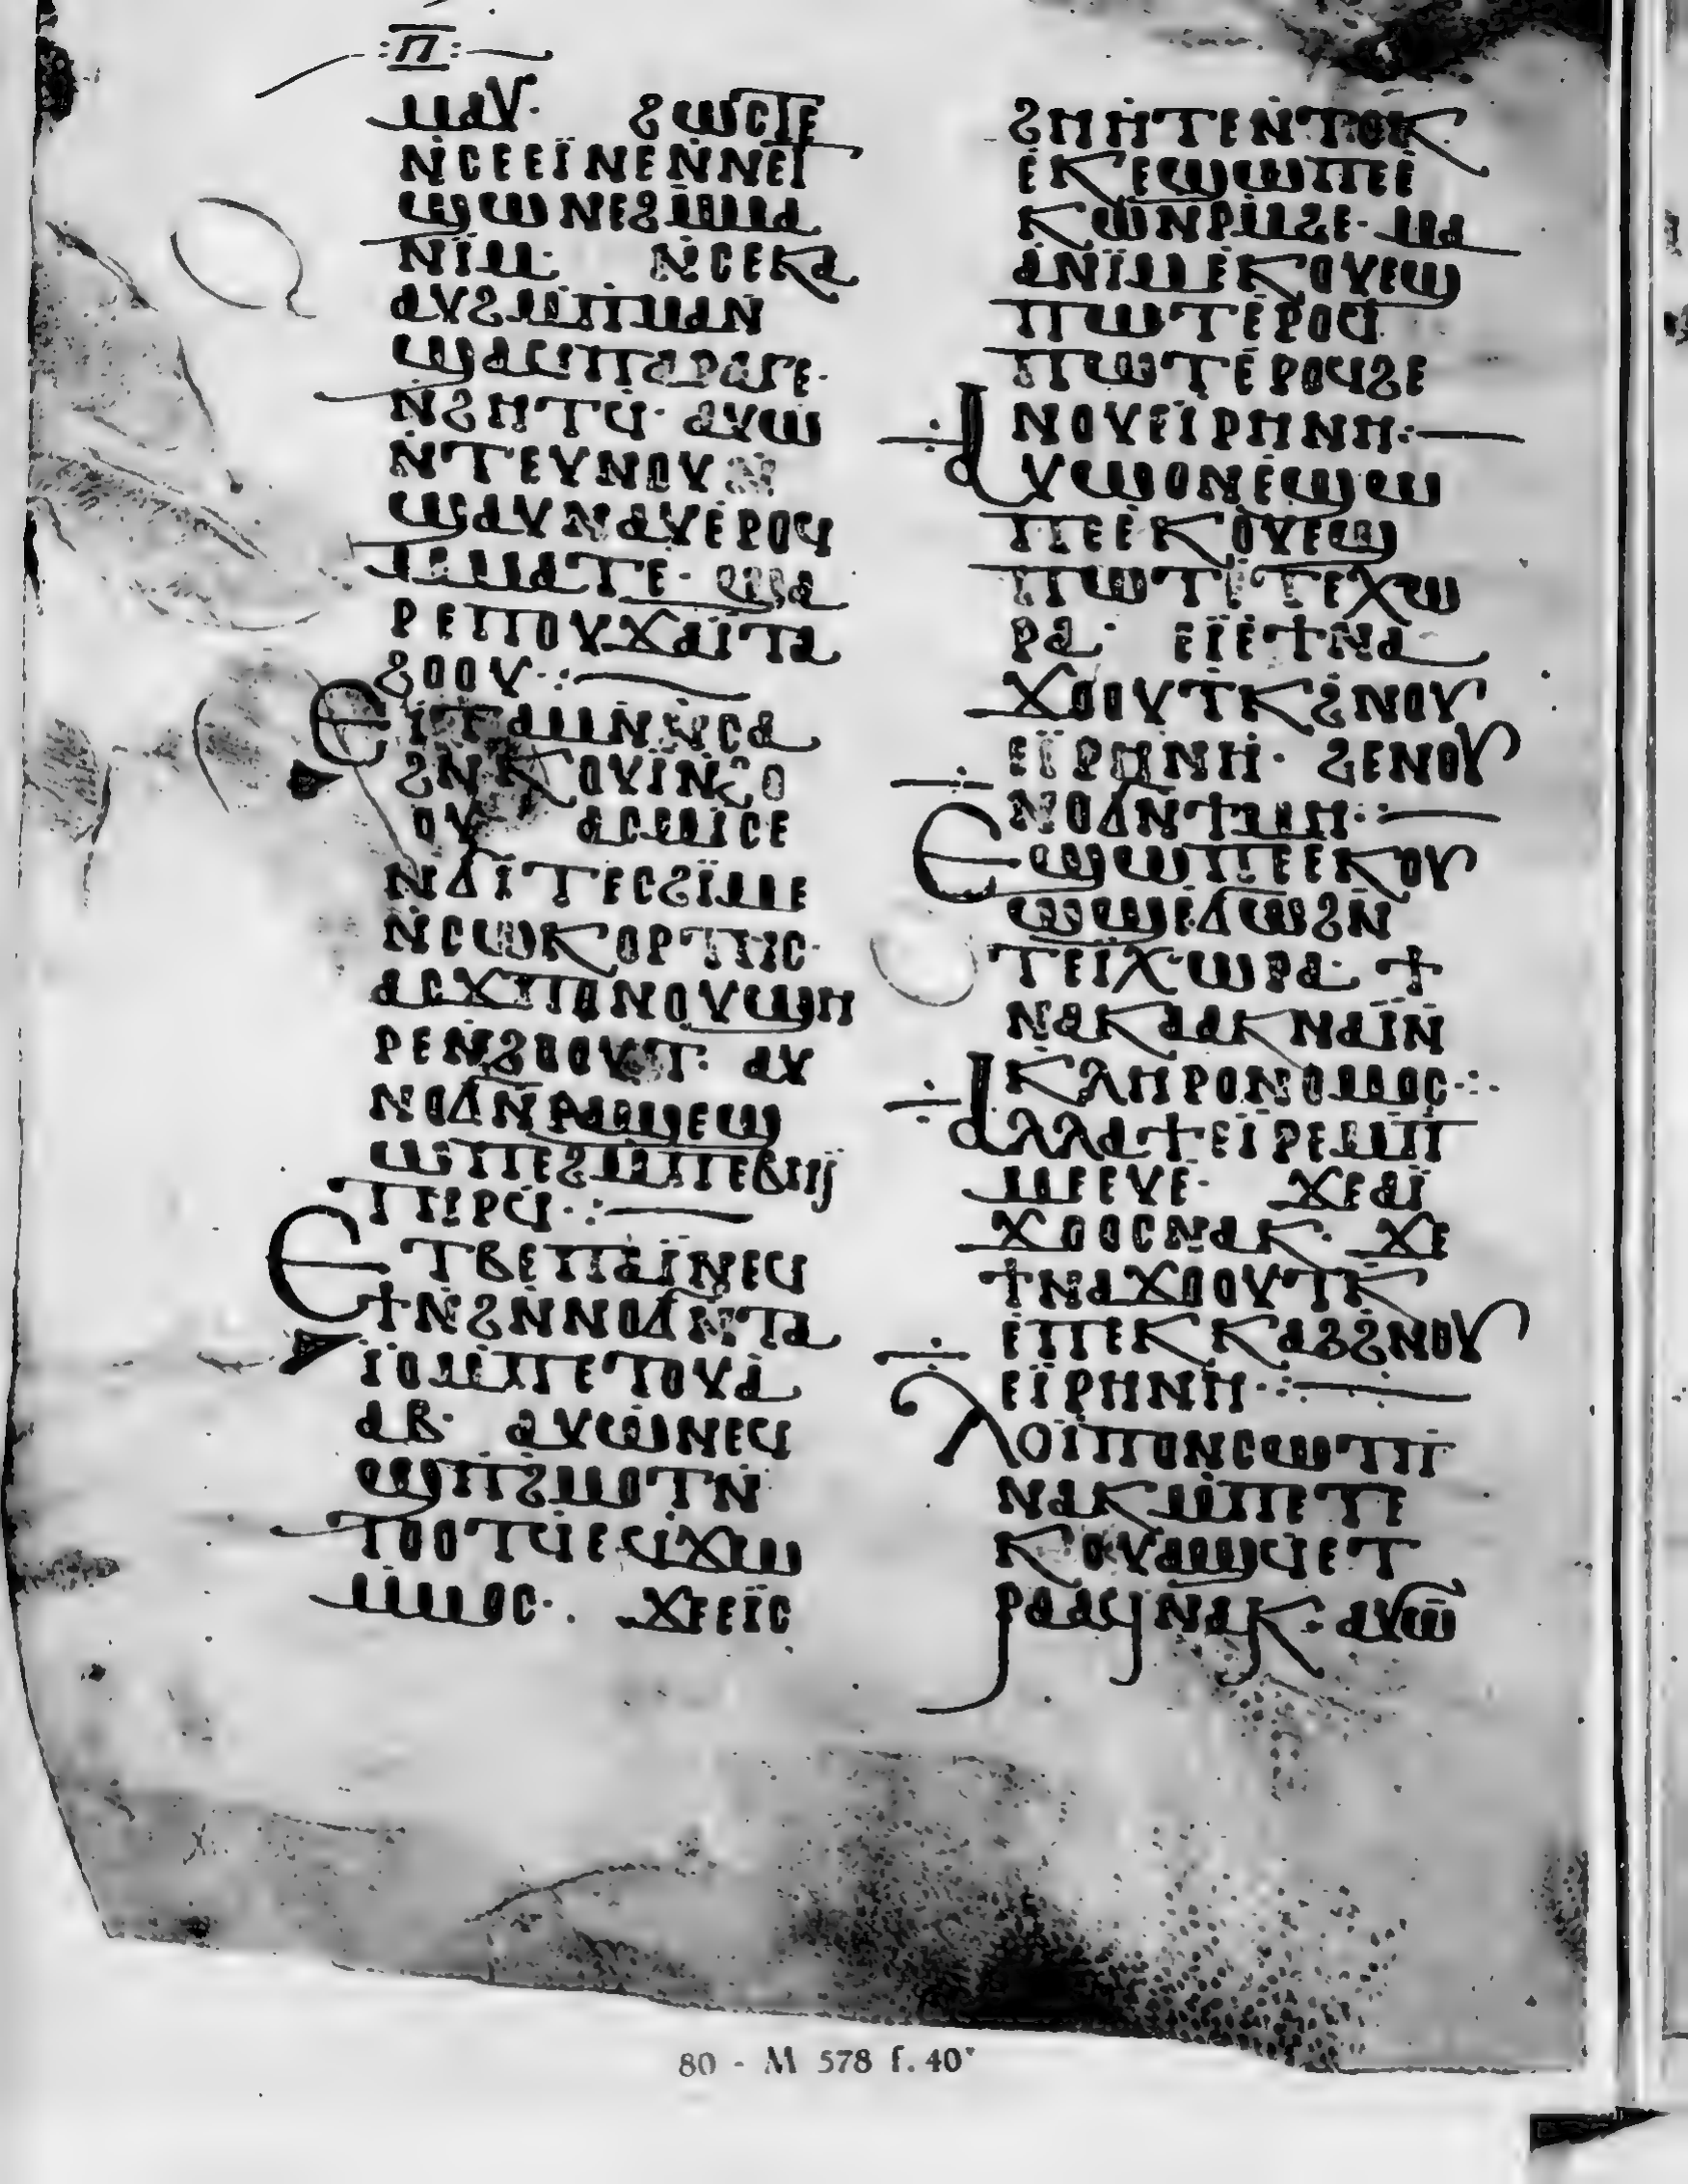 :ⲡ̅:
ⲙⲁⲩ· ϩⲱⲥⲧⲉ
ⲛ̇ⲥⲉⲉⲓ̈ⲛⲉⲛ̇ⲛⲉⲧ
ϣⲱⲛⲉϩⲙ̇ⲙⲁ
ⲛⲓ̈ⲙ· ⲛ̇ⲥⲉⲕⲁ
ⲁⲩϩⲙ̇ⲡⲙⲁⲛ
ϣⲁϥⲡⲁⲣⲁⲅⲉ·
ⲛ̇ϩⲏⲧϥ· ⲁⲩⲱ
ⲛ̇ⲧⲉⲩⲛⲟⲩⲛ
ϣⲁⲩⲛⲁⲩⲉ̇ⲣⲟϥ
ⲙ̇ⲙⲁⲧⲉ· ϣⲁ
ⲣⲉⲡⲟⲩϫⲁⲓ̈ⲧⲁ
ϩⲟⲟⲩ·:
Ⲉⲓⲧⲁⲙⲛ̇ⲛ̇ⲥⲁ
ϩⲛ̇ⲕⲟⲩⲓ̈ⲛ̇ϩⲟ
ⲟⲩ ⲁⲥⲙⲓⲥⲉ
ⲛ̇ϭⲓ̈ⲧⲉⲥϩⲓ̈ⲙⲉ
ⲛ̇ⲥⲱⲕⲟⲣⲡⲓⲥ·
ⲁⲥϫⲡⲟⲛⲟⲩϣⲏ
ⲣⲉⲛ̇ϩⲟⲟⲩⲧ· ⲁⲩ
ⲛⲟϭⲛ̇ⲣⲁϣⲉϣ
ⲱⲡⲉϩⲙ̇ⲡⲉϥⲏⲓ̈
ⲧⲏⲣϥ·:
Ⲉⲧⲃⲉⲡⲁⲓ̈ⲛⲉϥ
ϯⲛ̇ϩⲛ̇ⲛⲟϭⲛ̇ⲧⲁ
ⲓ̈ⲟⲙ̇ⲡⲉⲧⲟⲩⲁ
ⲁⲃ· ⲁⲩⲱⲛⲉϥ
ϣⲡϩⲙⲟⲧⲛ̇
ⲧⲟⲟⲧϥⲉϥϫⲱ
ⲙ̇ⲙⲟⲥ·. ϫⲉⲉⲓ̈ⲥ
ϩⲏⲏⲧⲉⲛ̇ⲧⲟⲕ
ⲉ̇ⲕⲉϣⲱⲡⲉⲉ̇
ⲕⲱⲛ̇ⲣⲙ̇ϩⲉ· ⲙⲁ
ⲁⲛⲓ̈ⲙⲉ̇ⲕⲟⲩⲉϣ
ⲡⲱⲧⲉ̇ⲣⲟϥ
ⲡⲱⲧⲉ̇ⲣⲟϥϩⲉ
ⲛⲟⲩⲉⲓ̈ⲣⲏⲛⲏ·:
Ⲁⲩⲱⲟⲛⲉ̇ϣⲱ
ⲡⲉⲉ̇ⲕⲟⲩⲉϣ
ⲡⲱⲧⲉ̇ⲧⲉⲭⲱ
ⲣⲁ· ⲉⲓ̈ⲉ̇ϯⲛⲁ
ϫⲟⲟⲩⲧⲕϩⲛ̇ⲟⲩ
ⲉⲓ̈ⲣⲏⲛⲏ· ϩⲉⲛⲟⲩ
ⲛⲟϭⲛ̇ϯⲙⲏ·:
Ⲉϣⲱⲡⲉⲉⲕⲟⲩ
ⲱϣⲉ̇ϭⲱϩⲛ̇
ⲧⲉⲓ̈ⲭⲱⲣⲁ· ϯ
ⲛⲁⲕⲁⲁⲕⲛⲁⲓ̈ⲛ̇
ⲕⲗⲏⲣⲟⲛⲟⲙⲟⲥ·:·
Ⲁⲗⲗⲁϯⲉⲓ̈ⲣⲉⲙ̇ⲡ
ⲙⲉⲉⲩⲉ· ϫⲉⲁⲓ̈
ϫⲟⲟⲥⲛⲁⲕ· ϫⲉ
ϯⲛⲁϫⲟⲟⲩⲧⲕ
ⲉ̇ⲡⲉⲕⲕⲁϩϩⲛ̇ⲟⲩ
ⲉⲓ̈ⲣⲏⲛⲏ·:
Ⲗⲟⲓ̈ⲡⲟⲛⲥⲱⲧⲡ̇
ⲛⲁⲕⲙ̇ⲡⲉⲧⲉ
ⲕⲟⲩⲁϣϥⲉⲧ
ⲣⲁⲁϥⲛⲁⲕ: ⲁⲩⲱ̅
80 - M 578 f. 40ᵛ